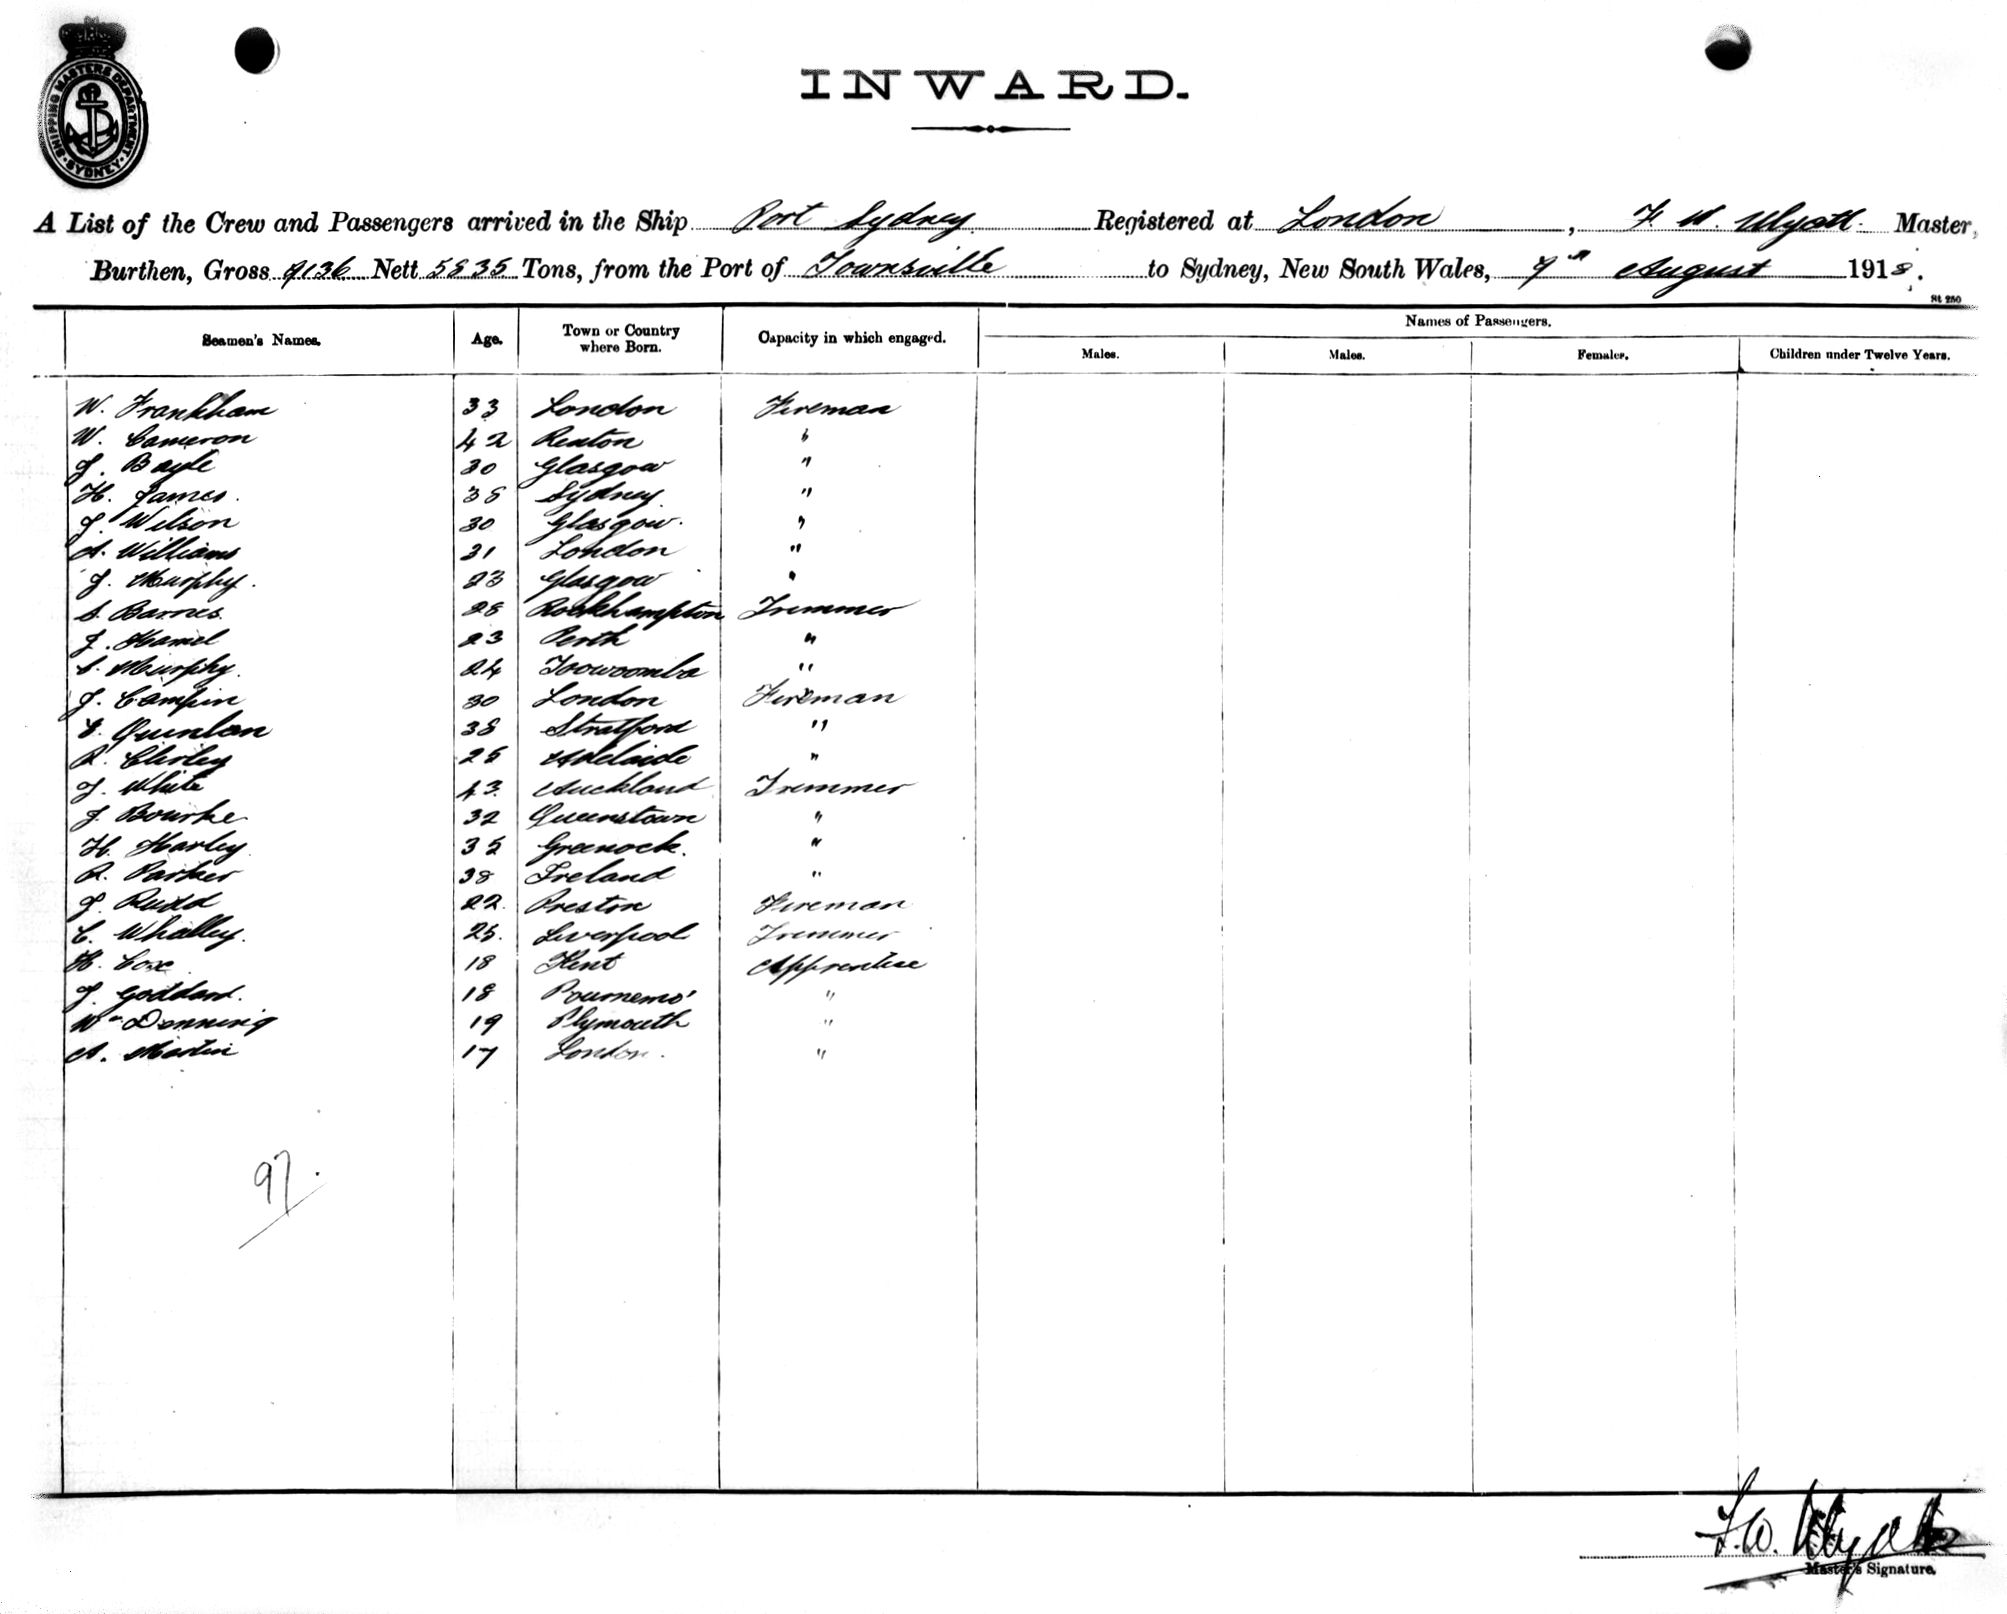 SHIPPING MASTERS DEPARTMENT · SYDNEY ·
INWARD.
A List of the Crew and Passengers arrived in the Ship Port Sydney Registered at London, F. W. Wyatt Master,
Burthen, Gross 9136 Nett 5835 Tons, from the Port of Townsville to Sydney, New South Wales, 9th August 1918.
St 250
Seamen's Names. Age. Town or Country where Born. Capacity in which engaged. Names of Passengers.
Males. Males. Females. Children under Twelve Years.
W. Frankham 33 London Fireman
W. Cameron 42 Renton "
J. Bayle 30 Glasgow "
H. James. 38 Sydney "
J. Wilson 30 Glasgow. "
A. Williams 31 London "
J. Murphy. 23 Glasgow "
S. Barnes. 28 Rockhampton Trimmer
J. Hamel 23 Perth "
S. Murphy. 24 Toowoomba "
J. Campin 30 London Fireman
E. Quinlan 38 Stratford "
R. 25 Adelaide "
J. White 43. Auckland Trimmer
J. Bourke 32 Queenstown "
H. Harley 35 Greenock. "
R. Parker 38 Ireland "
J. Rudd 22. Preston Fireman
C. Whalley. 25. Liverpool Trimmer
H. Cox 18 Kent Apprentice
J. Goddard. 18 Bournemo' "
Wm Denning 19 Plymouth "
A. Martin 17 London. "
97.
F. W. Wyatt
Master's Signature.